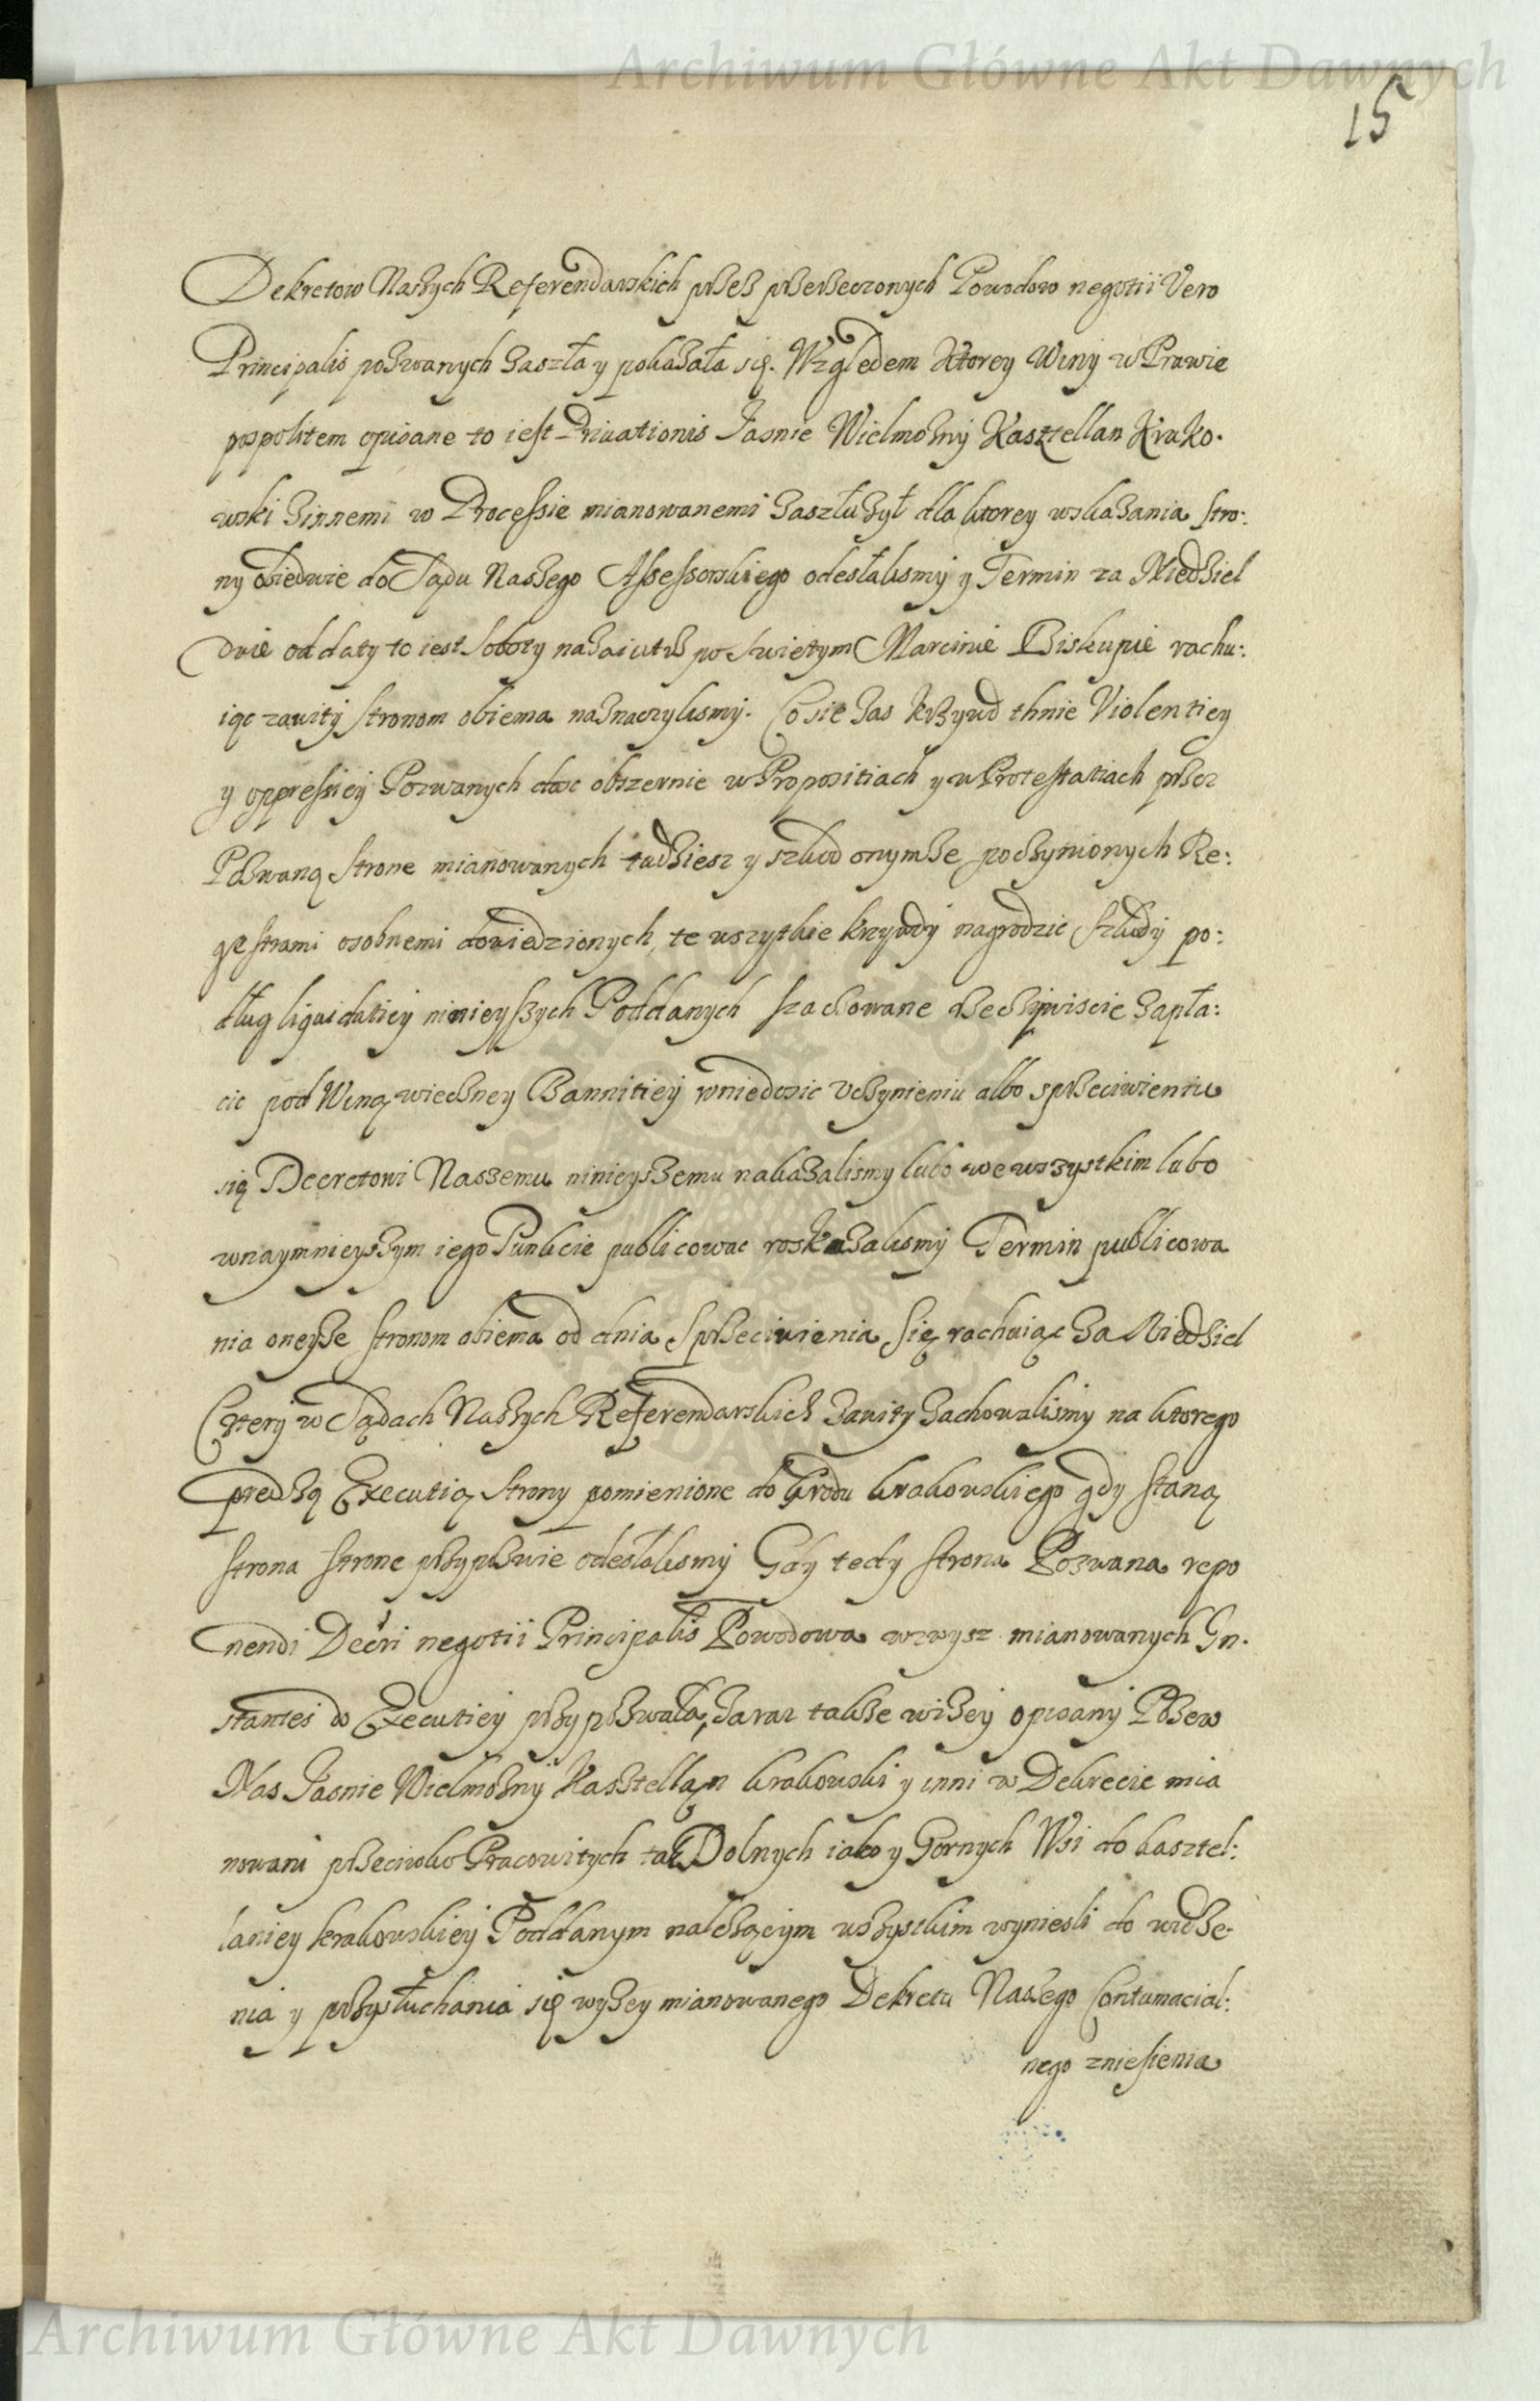 Archiwum Główne Akt Dawnych
15
Dekretow Naszych Referendarskich przez przerzeczonych Powodow negotii Vero
Principalis pozwanych zaszła y pokazała się. Względem Ktorey Winy w Prawie
pospolitem opisane to iest Priuationis Jasnie Wielmozny Kasztellan Krako-
wski zinnemi w Processie mianowanemi zaszłuzył dla ktorey wskazania stro:
ny obiedwie do Sądu Naszego Assessorskiego odesłalismy y Termin za Niedziel
dwie od daty to iest Soboty nazaiutrz po Swietym Marcinie Biskupie rachu:
iąc zawity stronom obiema naznaczylismy. Co sie zas krzywd thnie Violentiey
y oppressiey Pozwanych dosc obszernie w Propositiach y w Protestatiach przez
Pozwaną strone mianowanych tudziesz y szkod onymze poczynionych Re:
gestrami osobnemi dowiedzionych, te wszytkie krzywdy nagrodzic szkody po:
dług liquidatiey ninieyszych Poddanych szacowane rzeczywiscie zapła:
cic pod Winą wieczney Bannitiey w niedosic vczynieniu albo sprzeciwieniu
się Decretowi Naszemu ninieyszemu nakazalismy lubo we wszystkim lubo
w naymnieyszym iego Punkcie publicowac roskazalismy Termin publicowa
nia oneyze stronom obiema od dnia sprzeciwienia się rachuiąc za Niedziel
Cztery w Sądach Naszych Referendarskich zawity zachowalismy na ktorego
predszą Executią strony pomienione do Grodu krakowskiego gdy staną
strona strone przypozwie odesłalismy Gdy tedy strona Pozwana repo
nendi Decri negotii Principalis Powodowa wzwysz mianowanych In-
stantes do Executiey przypozwała, zaraz takze wizey opisany Pozew
Nas Jasnie Wielmozny Kasztellan krakowski y inni w Dekrecie mia
nowani przeciwko Pracowitych tak Dolnych iako y Gornych Wsi do kasztel:
laniey krakowskiey Poddanym nalezącym wszystkim wyniesli do widze-
nia y przysłuchania się wyzey mianowanego Dekretu Naszego Contumacial:
nego zniesienia
Archiwum Główne Akt Dawnych